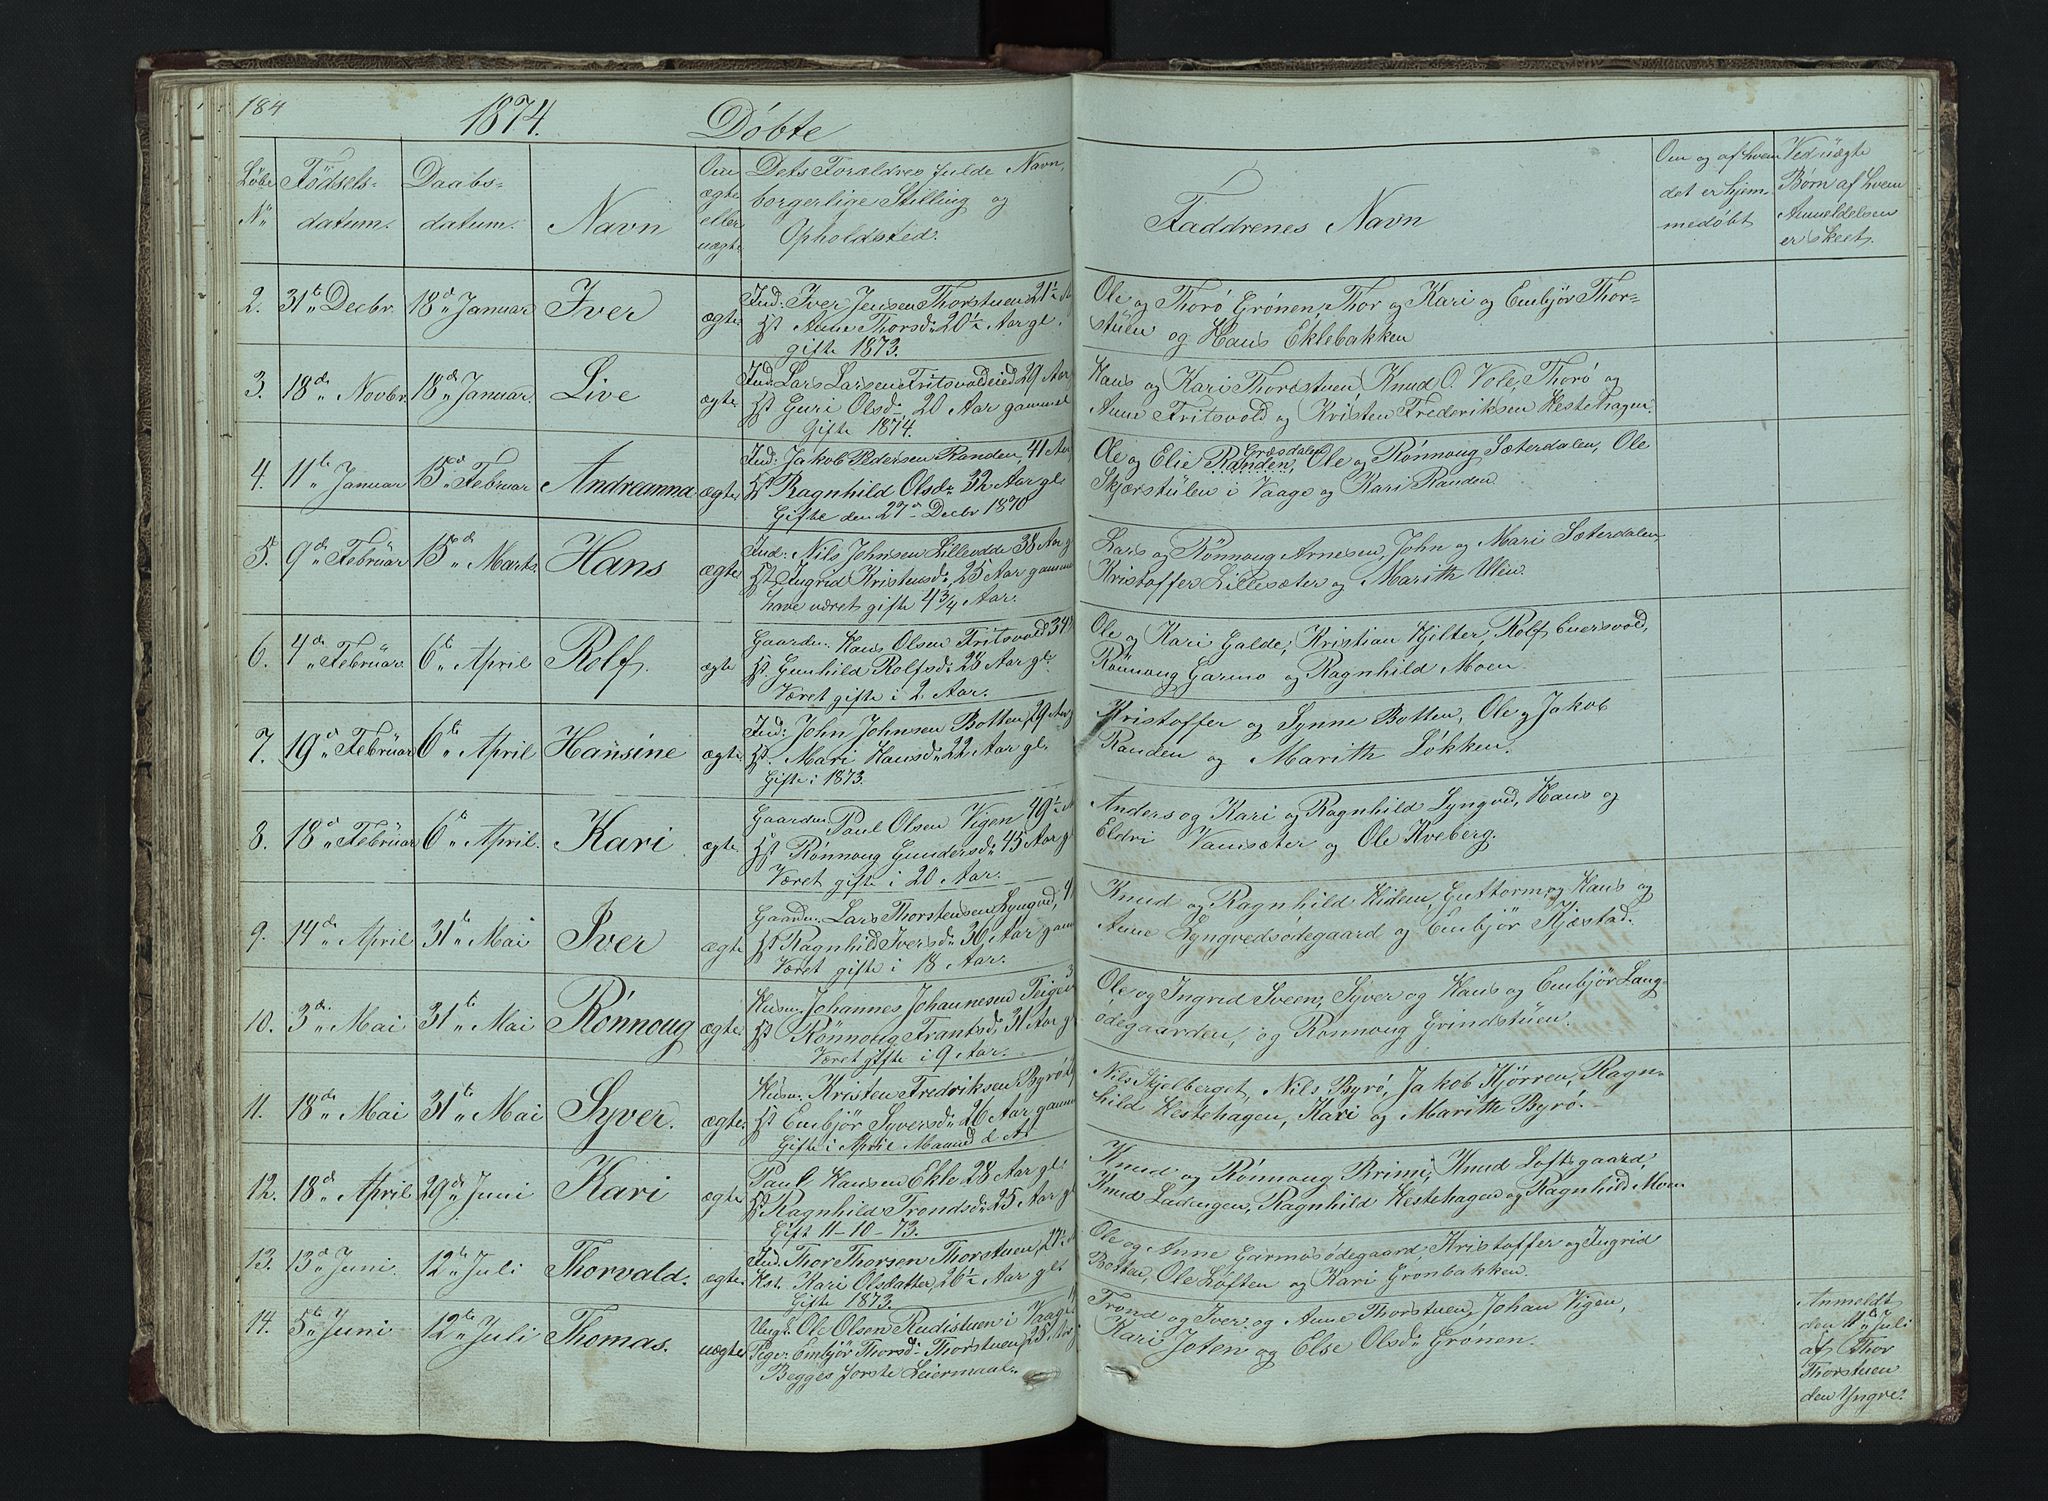 184
1874.
Döbte
Löbe N°
Födsels-
datum.
Daabs-
datum.
Navn
Om
ægte
eller
uægte
Dets Forældres fulde Navn,
borgerlige Stilling og
Opholdsted.
Faddrenes Navn
Om og af hvem
det er hjem-
medøbt
Ved uægte
Børn af hvem
Anmeldelsen
er skeet.
2. 31te Decbr. 18de Januar Iver ægte Ind: Iver Jensen Thorstuen 21½
Hst Anne Thorsd: 20½ Aar gl.
Gifte 1873.
Ole og Thorö Grönen, Thor og Kari og Embjör Thor-
stuen og Hans Eklebakken
3. 18de Novbr. 18de Januar. Live ægte Ind: Lars Larsen Fritsvoldeied 29 Aar
Hst Guri Olsd: 20 Aar gammel
Gifte 1874.
Hans og Kari Thorstuen, Knud O. Vole, Thorö og
Anne Fritsvold og Kristen Frederiksen Hestehagen.
4. 11te Januar 15de Februar Andreanna ægte Ind: Jakob Pedersen Randen, 41 Aar
Hst Ragnhild Olsd: 32 Aar gl
Gifte den 27de Decbr 1870
Ole og Elie Randen, Ole og Rönnoug Sæterdalen, Ole
Skjærstulen i Vaage og Kari Randen
5. 9de Februar 15de Marts. Hans ægte Ind: Nils Johnsen Lilleodde 38 Aar g
Hst Ingrid Kristensd: 25 Aar gamme
have været gifte 4¾ Aar.
Lars og Rönnoug Arnesen, John og Mari Sæterdalen
Kristoffer Lillesæter og Marith Ulen.
6. 4de Februar 6te April Rolf. ægte Gaardm. Hans Olsen Fritsvold 34
Hst. Gunhild Rolfsd: 28 Aar gl.
Været gifte i 2 Aar.
Ole og Kari Galde, Kristian Hjelter, Rolf Cuersvold,
Rönnoug Garmo og Ragnhild Moen.
7. 19de Februar 6te April Hansine ægte Ind: John Johnsen Botten, 29 Aar g
Hst. Mari Hansd: 22 Aar gl.
Gifte i 1873.
Kristoffer og Synne Botten, Ole og Jakob
Randen og Marith Lökken.
8. 18de Februar 6te April. Kari ægte Gaardm: Paul Olsen Vigen 49½
Hst Rönnoug Gundersd: 45 Aar gl
Været gifte i 20 Aar.
Anders og Kari og Ragnhild Lyngved, Hans og
Eldri Vansæter og Ole Kveberg.
9. 14de April 31te Mai Iver ægte Gaardm. Lars Thorstensen Lyngved, 4
Hst Ragnhild Iversd: 36 Aar gam
Været gifte i 18 Aar.
Knud og Ragnhild Hidem, Guttorm og Hans og
Anne Lyngvedsödegaard og Embjör Kjæstad.
10. 3de Mai 31te Mai Rönnoug ægte Husm: Johannes Johannesen Teigen 3
Hst Rönnoug Frantsd: 31 Aar gl
Været gifte i 9 Aar.
Ole og Ingrid Sveen, Syver og Hans og Embjör Lang-
ödegaarden, og Rönnoug Grindstuen.
11. 18de Mai 31te Mai Syver. ægte. Husm: Kristen Fredriksen Byrö
Hst Embjör Syversd: 26 Aar gamm
Gifte i April Maaned d. A.
Nils Skjelberget, Nils Byrö, Jakob Kjörren, Ragn-
hild Hestehagen, Kari og Marith Byrö.
12. 18de April 29de Juni Kari ægte Paul Hansen Ekle 28 Aar gl.
Hst Ragnhild Trondsd: 25 Aar gl
Gift 11-10-73.
Knud og Rönnoug Brimi, Knud Loftsgaard,
Knud Ladengen, Ragnhild Hestehagen og Ragnhild Moen
13. 13de Juni 12te Juli Thorvald. ægte Ind: Thor Thorsen Thorstuen, 27½
Hst. Kari Olsdatter, 26½ Aar gl
Gifte 1873.
Ole og Anne Garmosödegaard, Kristoffer og Ingrid
Botten, Ole Loften og Kari Grönbakken.
14. 5te Juni 12te Juli Thomas. uægte Ungk. Ole Olsen Rudistuen i Vaage
Pige: Embjör Thorsd: Thorstuen, 25 Aar
Begges förste Leiermaal.
Trond og Iver og Anne Thorstuen, Johan Vigen,
Kari Joten og Else Olsd: Grönen.
Anmeldt
den 11te Juli
af Thor
Thorstuen
den Yngre.